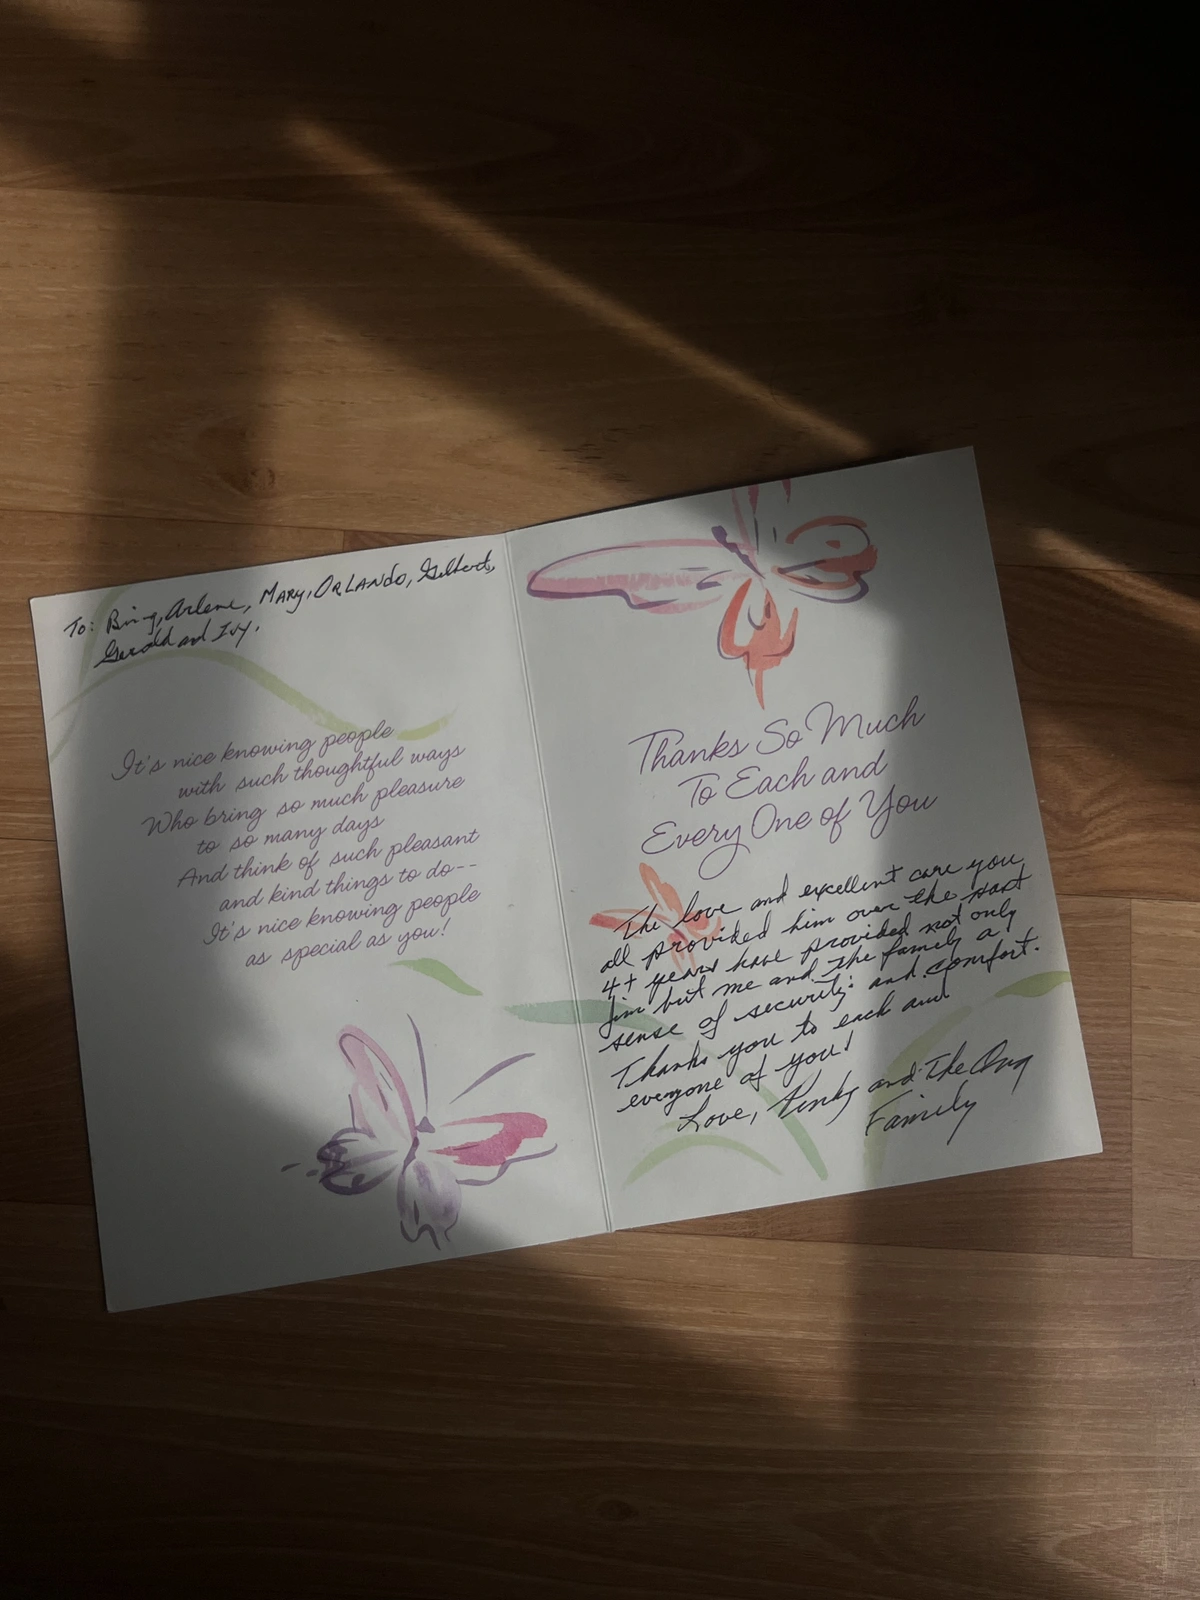 To: Bing, Arlene, MARY, ORLANDO, Gilbert,
Gerald and Ivy.
It's nice knowing people
with such thoughtful ways
Who bring so much pleasure
to so many days
And think of such pleasant
and kind things to do--
It's nice knowing people
as special as you!
Thanks So Much
To Each and
Every One of You
The love and excellent care you
all provided him over the past
4+ years have provided not only
Jim but me and the family a
sense of security and comfort.
Thank you to each and
everyone of you!
Love, Pinky and The Ong
Family